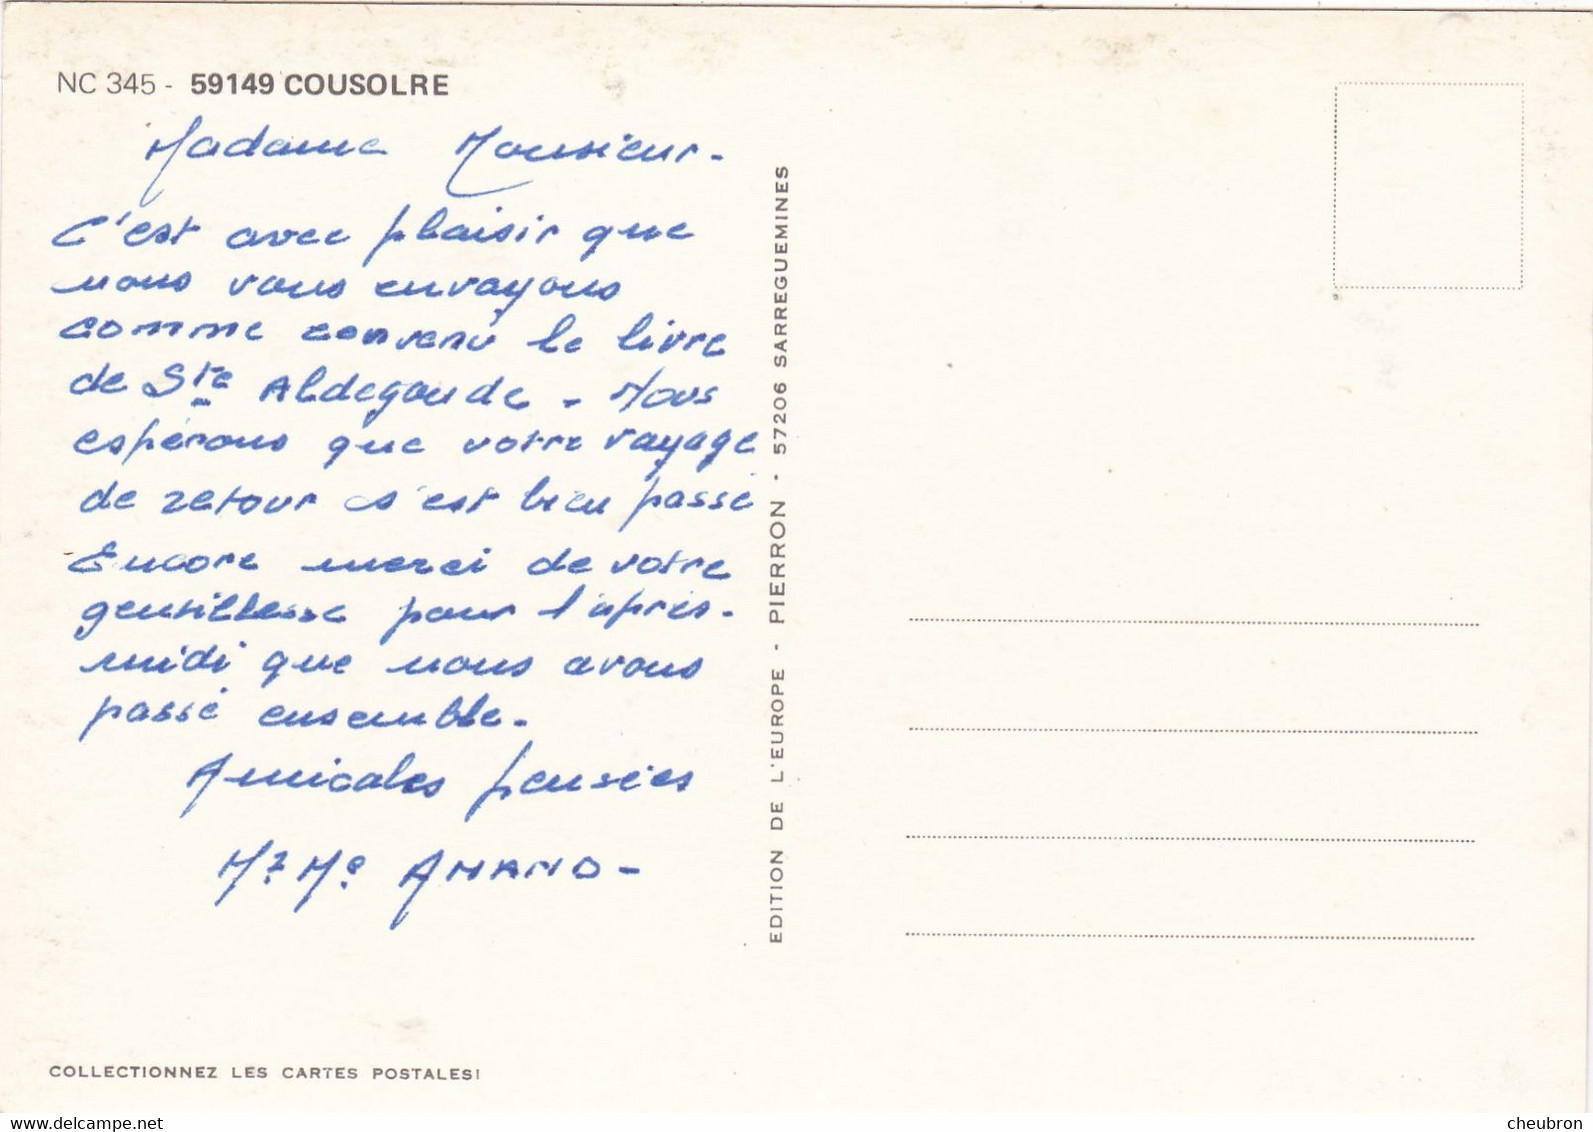 NC 345 - 59149 COUSOLRE
Madame Monsieur.
C'est avec plaisir que
nous vous envoyons
comme convenu le livre
de Ste Aldegonde - Nous
espérons que votre voyage
de retour s'est bien passé
Encore merci de votre
gentillesse pour l'après-
midi que nous avons
passé ensemble.
Amicales pensées
Mr Me AMAND -
COLLECTIONNEZ LES CARTES POSTALES!
EDITION DE L'EUROPE - PIERRON - 57206 SARREGUEMINES
www.delcampe.net
cheubron